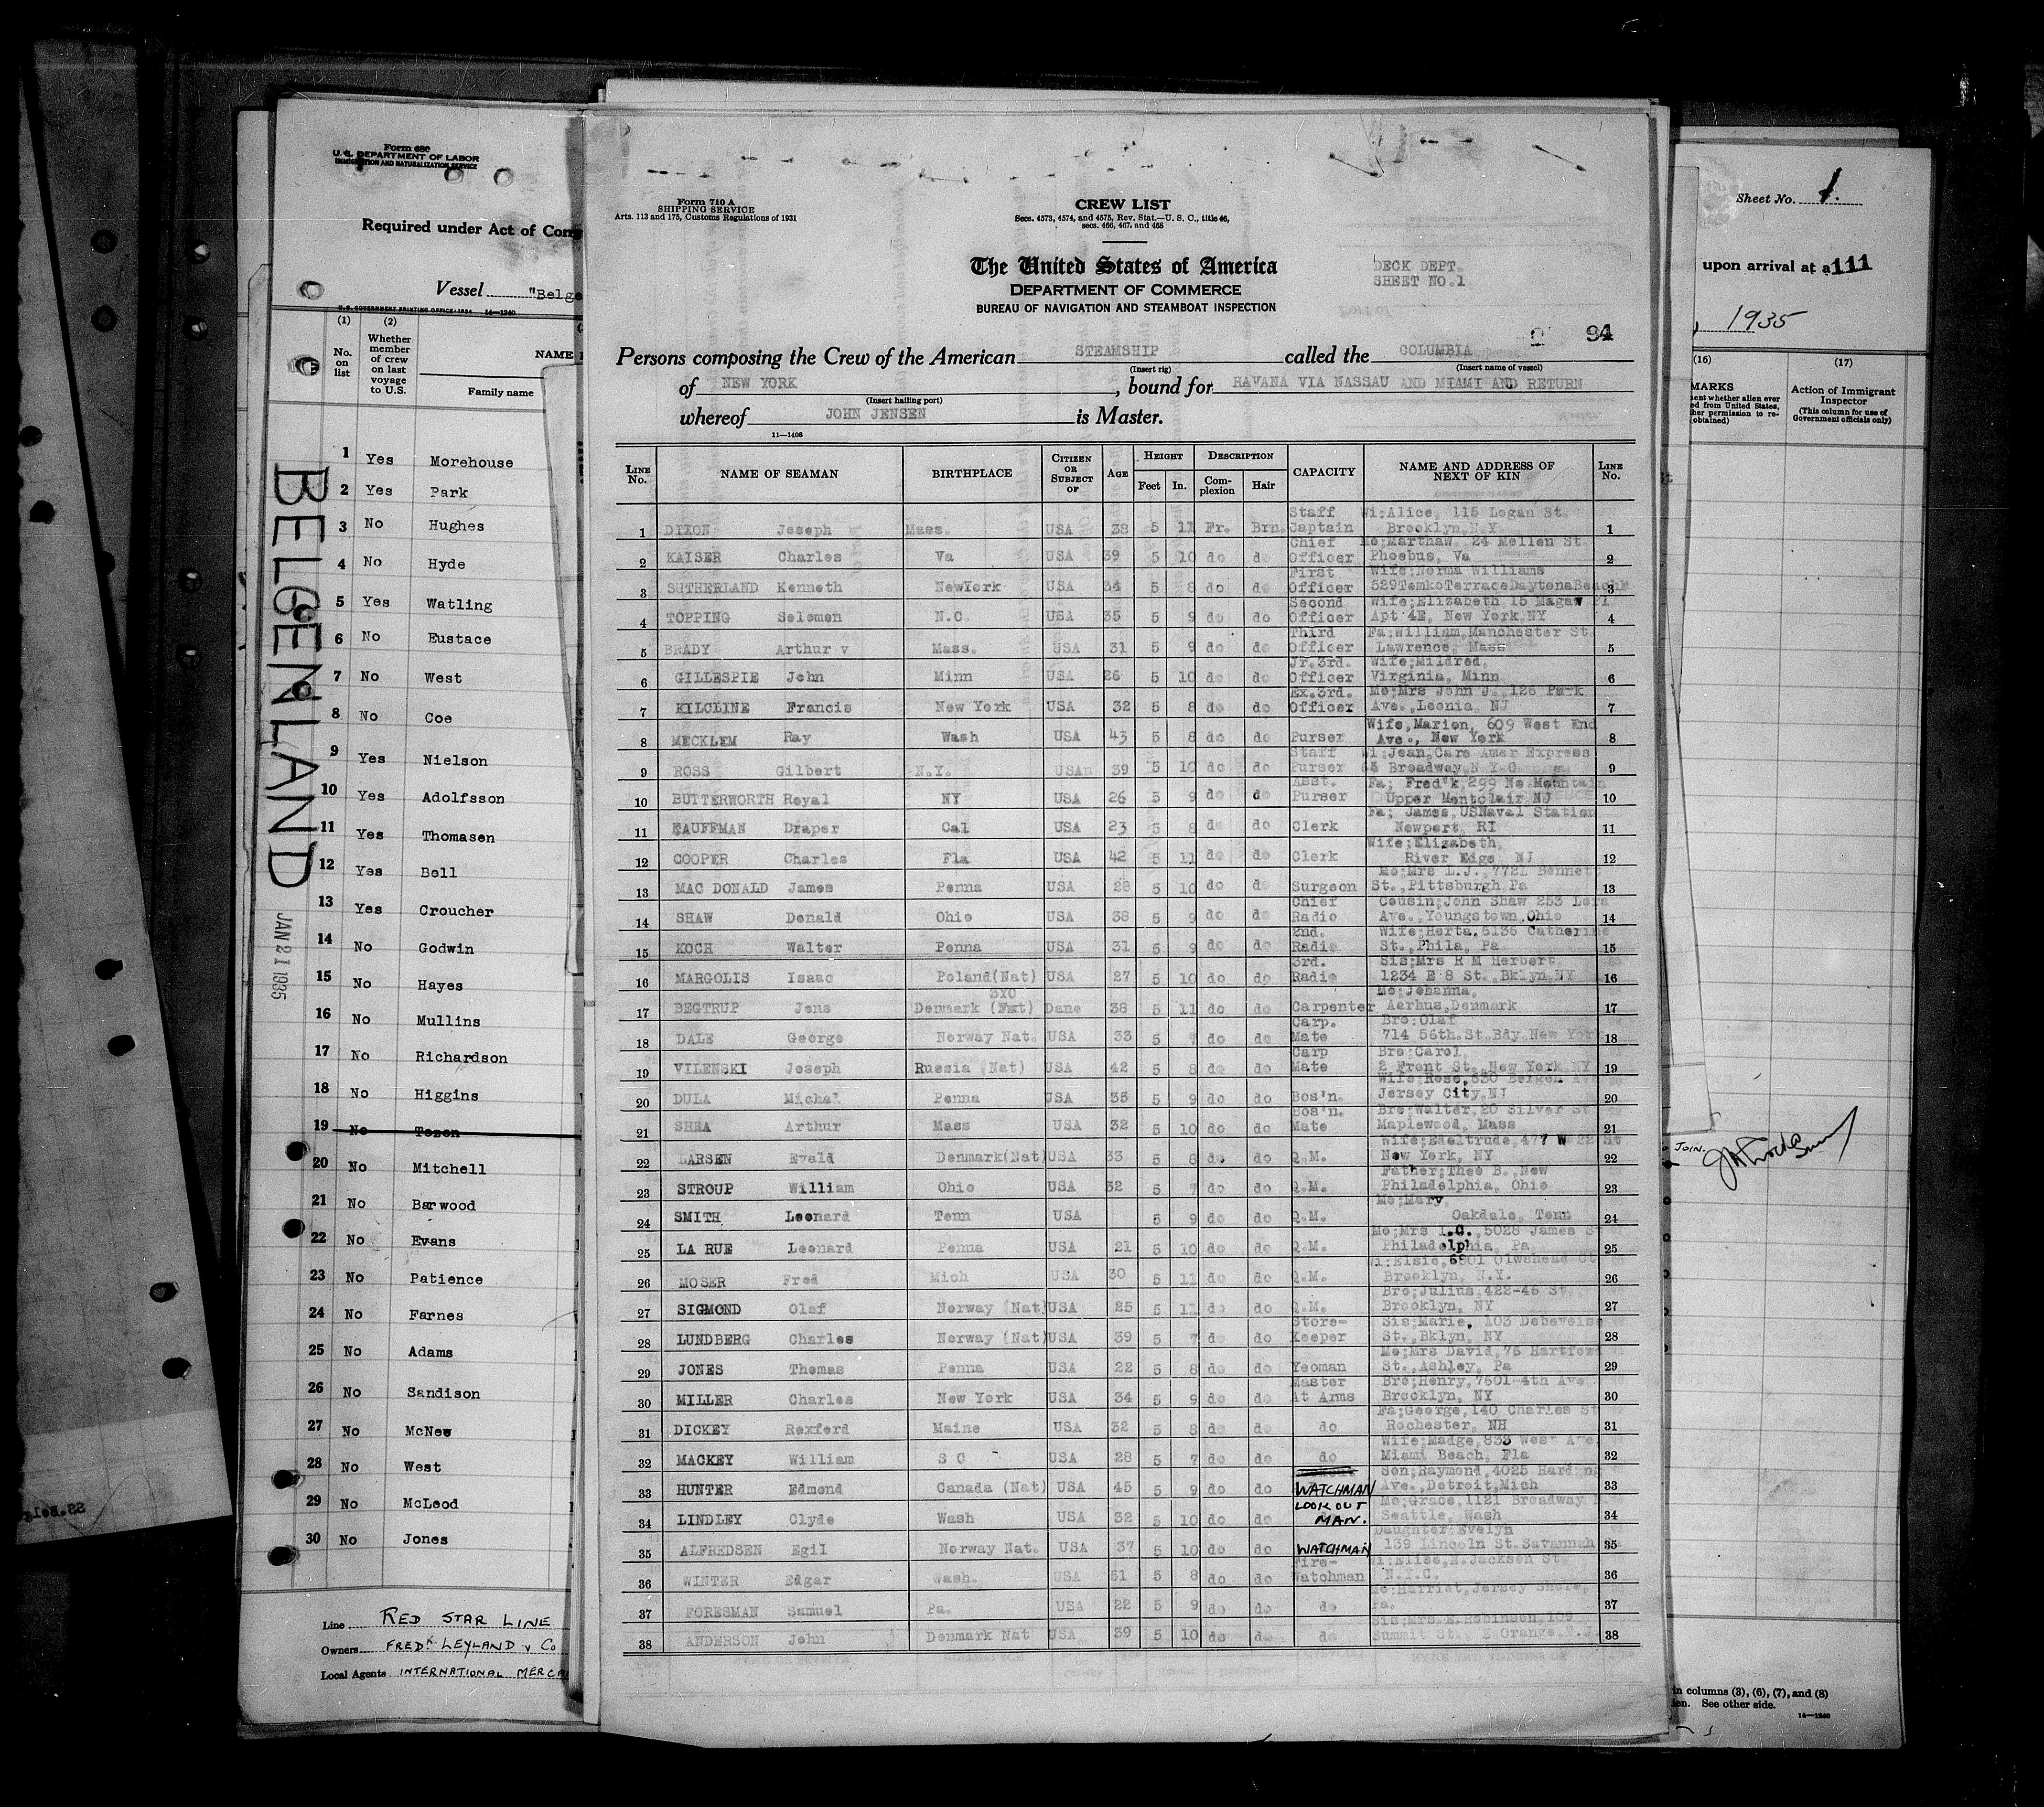 Form 680
U. S. DEPARTMENT OF LABOR
IMMIGRATION AND NATURALIZATION SERVICE
Required under Act of Con
Vessel "Belge
U. S. GOVERNMENT PRINTING OFFICE: 1934 14—1240
(1) (2)
No. on list
Whether member of crew on last voyage to U.S.
NAME I
Family name
1 Yes Morehouse
2 Yes Park
3 No Hughes
4 No Hyde
5 Yes Watling
6 No Eustace
7 No West
8 No Coe
9 Yes Nielson
10 Yes Adolfsson
11 Yes Thomasen
12 Yes Bell
13 Yes Croucher
14 No Godwin
15 No Hayes
16 No Mullins
17 No Richardson
18 No Higgins
19 No
20 No Mitchell
21 No Barwood
22 No Evans
23 No Patience
24 No Farnes
25 No Adams
26 No Sandison
27 No McNew
28 No West
29 No McLeod
30 No Jones
Line RED STAR LINE
Owners FREDK LEYLAND & Co
Local Agents INTERNATIONAL MERCA
BELGENLAND
JAN 21 1935
SS.Belg
Form 710 A
SHIPPING SERVICE
Arts. 113 and 175, Customs Regulations of 1931
CREW LIST
Secs. 4573, 4574, and 4575, Rev. Stat.—U. S. C., title 46,
secs. 466, 467, and 468
The United States of America
DEPARTMENT OF COMMERCE
BUREAU OF NAVIGATION AND STEAMBOAT INSPECTION
DECK DEPT.
SHEET NO.1
94
Persons composing the Crew of the American STEAMSHIP called the COLUMBIA
(Insert rig) (Insert name of vessel)
of NEW YORK , bound for HAVANA VIA NASSAU AND MIAMI AND RETURN
(Insert hailing port)
whereof JOHN JENSEN is Master.
11—1408
LINE No. NAME OF SEAMAN BIRTHPLACE CITIZEN OR SUBJECT OF AGE HEIGHT Feet In. DESCRIPTION Complexion Hair CAPACITY NAME AND ADDRESS OF NEXT OF KIN LINE No.
1 DIXON Joseph Mass. USA 38 5 11 Fr. Brn. Staff Captain Wi:Alice, 115 Logan St. Brooklyn,N.Y. 1
2 KAISER Charles Va USA 39 5 10 do do Chief Officer Mo;Marthaw, 24 Mellen St Phoebus, Va 2
3 SUTHERLAND Kenneth NewYork USA 34 5 8 do do First Officer Wife;Norma Williams 529TemkoTerraceDaytonaBeach 3
4 TOPPING Solomon N.C. USA 35 5 9 do do Second Officer Wife;Elizabeth 15 Magaw Pl Apt 4E, New York,NY 4
5 BRADY Arthur v Mass. USA 31 5 9 do do Third Officer Fa;William,Manchester St. Lawrence, Mass 5
6 GILLESPIE John Minn USA 26 5 10 do do Jr.3rd. Officer Wife;Mildred, Virginia, Minn 6
7 KILCLINE Francis New York USA 32 5 8 do do Ex.3rd. Officer Mo;Mrs John J. 126 Park Ave.,Leonia, NJ 7
8 MECKLEM Ray Wash USA 43 5 8 do do Purser Wife,Marion, 609 West End Ave., New York 8
9 ROSS Gilbert N.Y. USA 39 5 10 do do Staff Purser Wi:Jean,Care Amer Express 65 Broadway,N.Y.C. 9
10 BUTTERWORTH Royal NY USA 26 5 9 do d Asst. Purser Fa; Fred'k,299 No Mountain Upper Montclair NJ 10
11 KAUFFMAN Draper Cal USA 23 5 8 do do Clerk Fa; James,USNaval Station Newport, RI 11
12 COOPER Charles Fla USA 42 5 11 do do Clerk Wife;Elizabeth, River Edge, NJ 12
13 MAC DONALD James Penna USA 28 5 10 do do Surgeon Mo;Mrs L.J., 7721 Bennet St.,Pittsburgh Pa 13
14 SHAW Donald Ohio USA 38 5 9 do do Chief Radio Cousin;John Shaw 253 Lora Ave.,Youngstown,Ohio 14
15 KOCH Walter Penna USA 31 5 9 do do 2nd. Radio Wife;Herta,5136 Catherine St.,Phila, Pa 15
16 MARGOLIS Isaac Poland(Nat) USA 27 5 10 do do 3rd. Radio Sis;Mrs R M Herbert. 1234 E 8 St.,Bklyn,NY 16
17 BEGTRUP Jens Denmark Dane 38 5 11 do do Carpenter Mo;Johanna, Aarhus,Denmark 17
18 DALE George Norway Nat. USA 33 5 7 do do Carp. Mate Bro;Olaf 714 56th.St.Bdy New York 18
19 VILENSKI Joseph Russia (Nat) USA 42 5 8 do do Carp Mate Bro;Carol, 2 Front St.,New York,NY 19
20 DULA Michal Penna USA 35 5 9 do do Bos'n. Wife;Rose,530 Bergen Ave Jersey City,NJ 20
21 SHEA Arthur Mass USA 32 5 10 do do Bos'n. Mate Bro;Walter,20 Silver St Maplewood, Mass 21
22 LARSEN Evald Denmark(Nat) USA 33 5 8 do do Q.M. Wife;Edeltrude,477 W 22 St New York, NY 22
23 STROUP William Ohio USA 32 5 7 do do Q.M. Father;Theo B.,New Philadelphia, Ohio 23
24 SMITH Leonard Tenn USA 5 9 do do Q.M. Mo;Mary, Oakdale, Tenn 24
25 LA RUE Leonard Penna USA 21 5 10 do do Q.M. Mo;Mrs I.C.,5028 James St Philadelphia, Pa 25
26 MOSER Fred Mich USA 30 5 11 do do Q.M. Wi:Elsie,6801 St Brooklyn, N.Y. 26
27 SIGMOND Olaf Norway (Nat) USA 25 5 11 do do Q.M. Bro;Julius,422-45 St., Brooklyn, NY 27
28 LUNDBERG Charles Norway (Nat) USA 39 5 7 do do Store- Keeper Sis;Marie, 103 Debevoise St.,Bklyn, NY 28
29 JONES Thomas Penna USA 22 5 8 do do Yeoman Mo;Mrs David,75 Hartford St.,Ashley, Pa 29
30 MILLER Charles New York USA 34 5 9 do do Master At Arms Bro;Henry,7601-4th Ave. Brooklyn, NY 30
31 DICKEY Rexford Maine USA 32 5 8 do do do Fa;George,140 Charles St Rochester, NH 31
32 MACKEY William S C USA 28 5 7 do do do Wife;Madge,833 West Ave. Miami Beach, Fla 32
33 HUNTER Edmond Canada (Nat) USA 45 5 9 do do WATCHMAN Son;Raymond,4025 Harding Ave.,Detroit,Mich 33
34 LINDLEY Clyde Wash USA 32 5 10 do do LOOKOUT MAN. Mo;Grace,1121 Broadway N. Seattle, Wash 34
35 ALFREDSEN Egil Norway Nat. USA 37 5 10 do do WATCHMAN Daughter;Evelyn 139 Lincoln St.Savannah 35
36 WINTER Edgar Wash. USA 51 5 8 do do Fire- Watchman Wi:Elise,E.Jackson St. N.Y.C. 36
37 FORESMAN Samuel Pa. USA 22 5 9 do do do Mo:Harriet,Jersey Shore, Pa. 37
38 ANDERSON John Denmark Nat USA 39 5 10 do do do Sis:Mrs.E.Robinson,109 Summit St., E.Orange,N.J. 38
Sheet No. 1.
upon arrival at a 111
, 1935
(16) (17)
MARKS
ent whether alien ever
ed from United States,
her permission to re-
obtained)
Action of Immigrant Inspector
(This column for use of Government officials only)
JOIN.
in columns (3), (6), (7), and (8)
ien. See other side.
14—1240